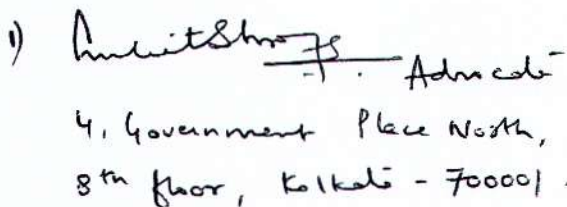 1) Advocate
4, Government Place North,
8th floor, Kolkata - 700001.